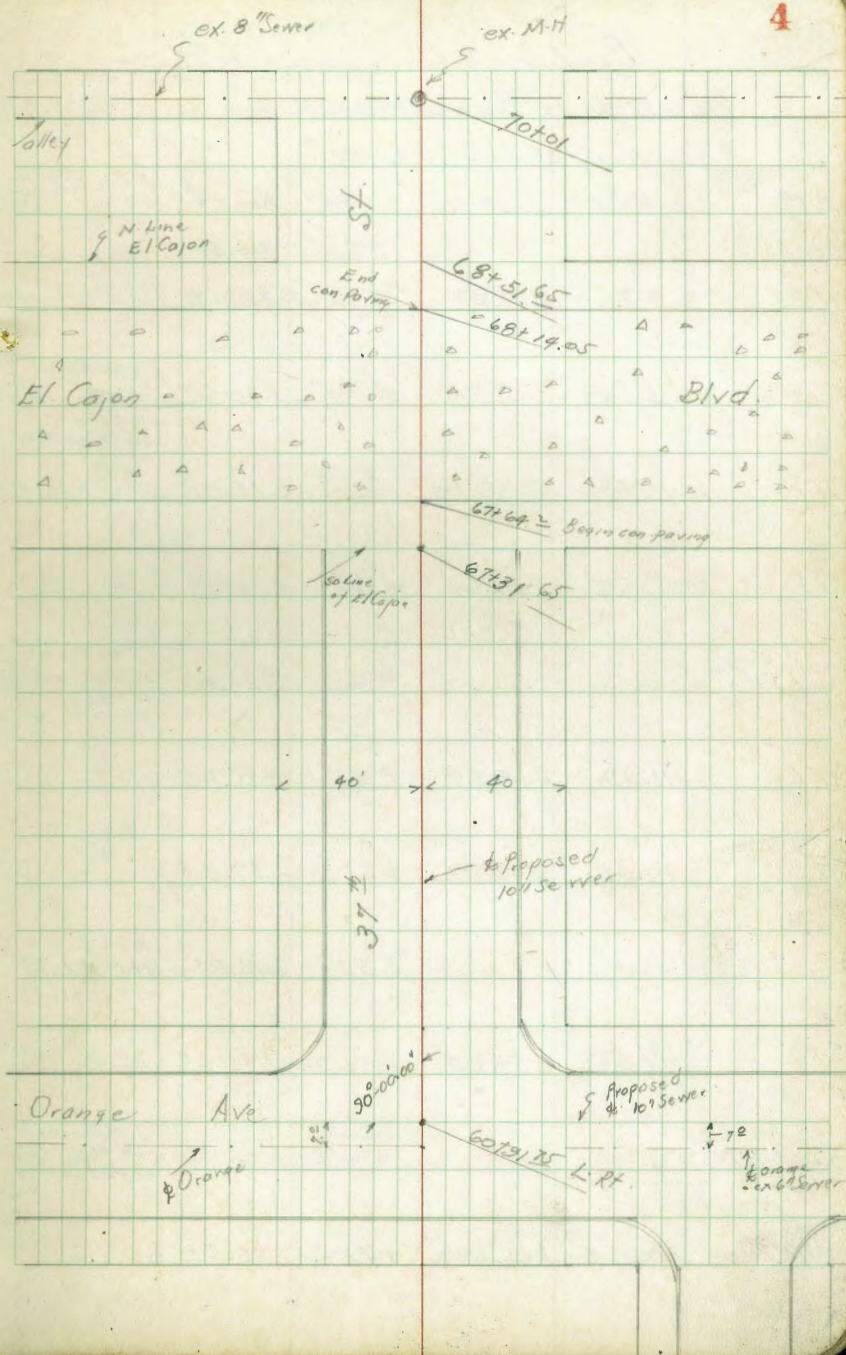 4
ex. 8" Sewer
ex. M.H
70+01
alley
St.
N. Line
El Cajon
68+51.65
End
con Paving
68+14.05
El Cajon
Blvd.
67+64 Begin con paving
so Line
of El Cajon
67+31.65
40'
40
℄ Proposed
10" Sewer
37th
90°-00'-00"
Orange Ave
Proposed
℄ 10" Sewer
7º
7º
60+91.75 L. Pt.
℄ Orange
℄ Orange
ex 6" Sewer